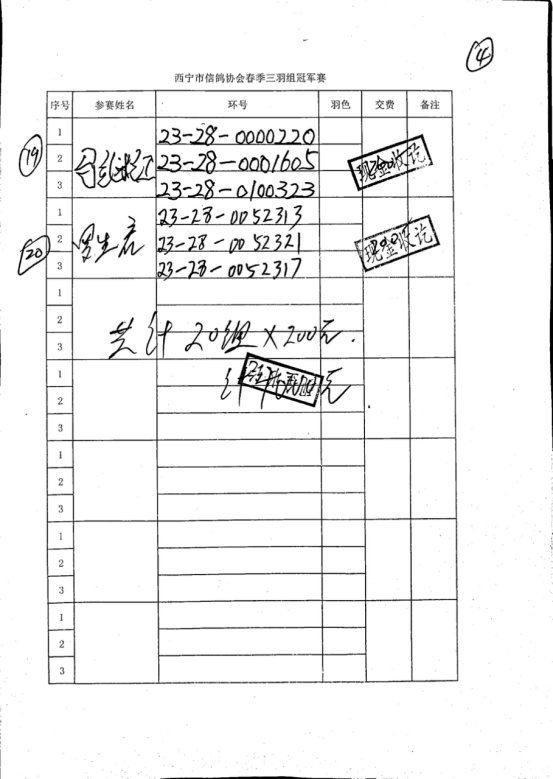 ④
西宁市信鸽协会春季三羽组冠军赛
序号 参赛姓名 环号 羽色 交费 备注
⑲
1 23-28-0000220
2 23-28-0001605 现金收讫
3 23-28-0100323
⑳
1 23-28-0052313
2 23-28-0052321 现金收讫
3 23-28-0052317
1
2
3
共计20组×200元.
1
计 元
2
3
1
2
3
1
2
3
1
2
3